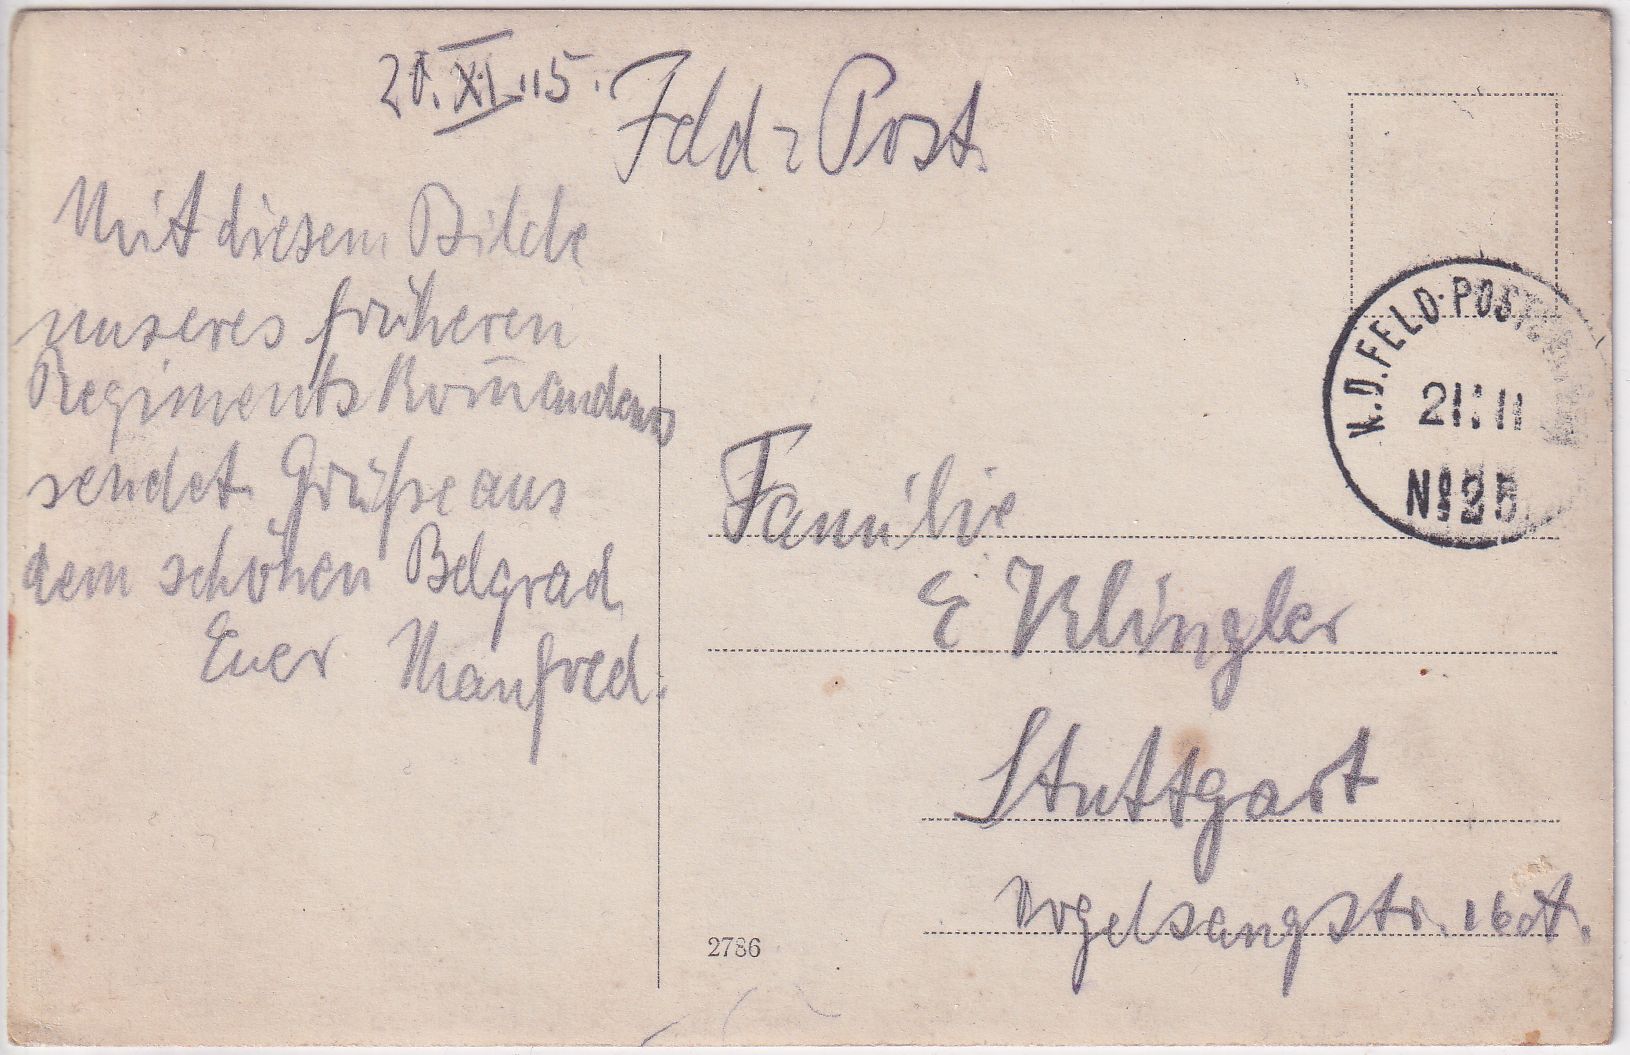 20. XI. 15.
Feld-Post.
Mit diesem Bilde
unseres früheren
Regiments Kom̅andeurs
sendet Grüße aus
dem schönen Belgrad
Euer Manfred.
K.D. FELD-POST
21 11
No 25
Familie
E Klingler
Stuttgart
Vogelsangstr.
2786